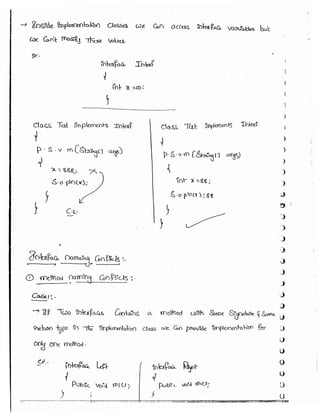 → Inside Implementation Classes we Can access Interface variables but
we Can't modify these values.
Ex:-
Interface Interf
{
int x=10;
}
class Test Implements Interf
{
p.s.v.m(String[] args)
{
x=888;
S.o.pln(x);
}
}
C.E:-
class Test Implements Interf
{
p.s.v.m(String[] args)
{
int x=88;
S.o.pln(x); 88
}
}
Interface naming Conflicts :-
① method naming Conflicts :-
Case 1:-
→ If Two Interfaces Contains a method with Same Signature & Same
return type In the Implementation class we Can provide Implementation for
only one method.
Ex:-
Interface Left
{
Public void m1();
}
Interface Right
{
public void m1();
}